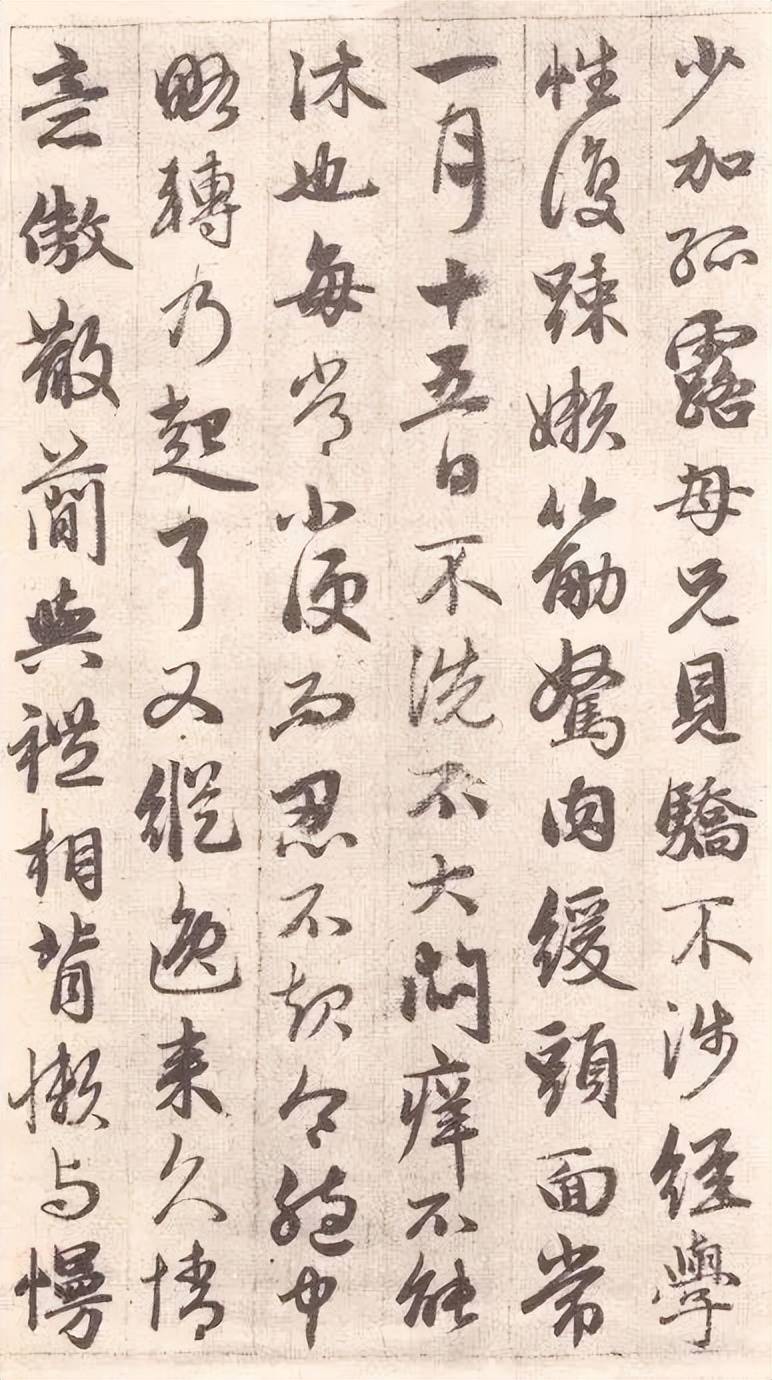 少加孤露母兄見驕不涉經學
性復踈嬾筋駑肉緩頭面常
一月十五日不洗不大悶痒不能
沐也每常小便而忍不起令胞中
略轉乃起耳又縱逸来久情
意傲散簡與禮相背懶与慢